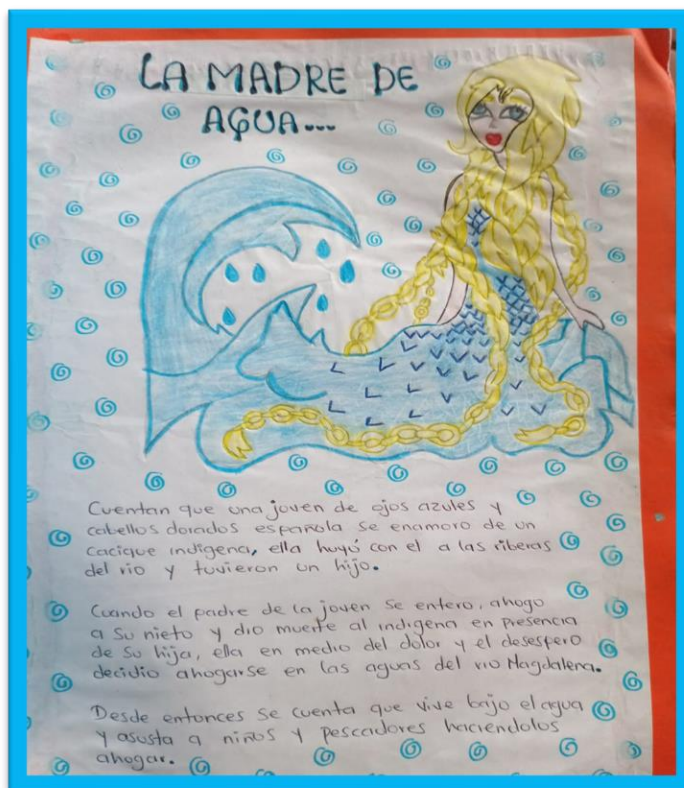 LA MADRE DE
AGUA...
Cuentan que una joven de ojos azules y
cabellos dorados española se enamoro de un
cacique indigena, ella huyó con el a las riberas
del rio y tuvieron un hijo.
Cuando el padre de la joven se entero, ahogo
a su nieto y dio muerte al indigena en presencia
de su hija, ella en medio del dolor y el desespero
decidio ahogarse en las aguas del rio Magdalena.
Desde entonces se cuenta que vive bajo el agua
y asusta a niños y pescadores haciendolos
ahogar.